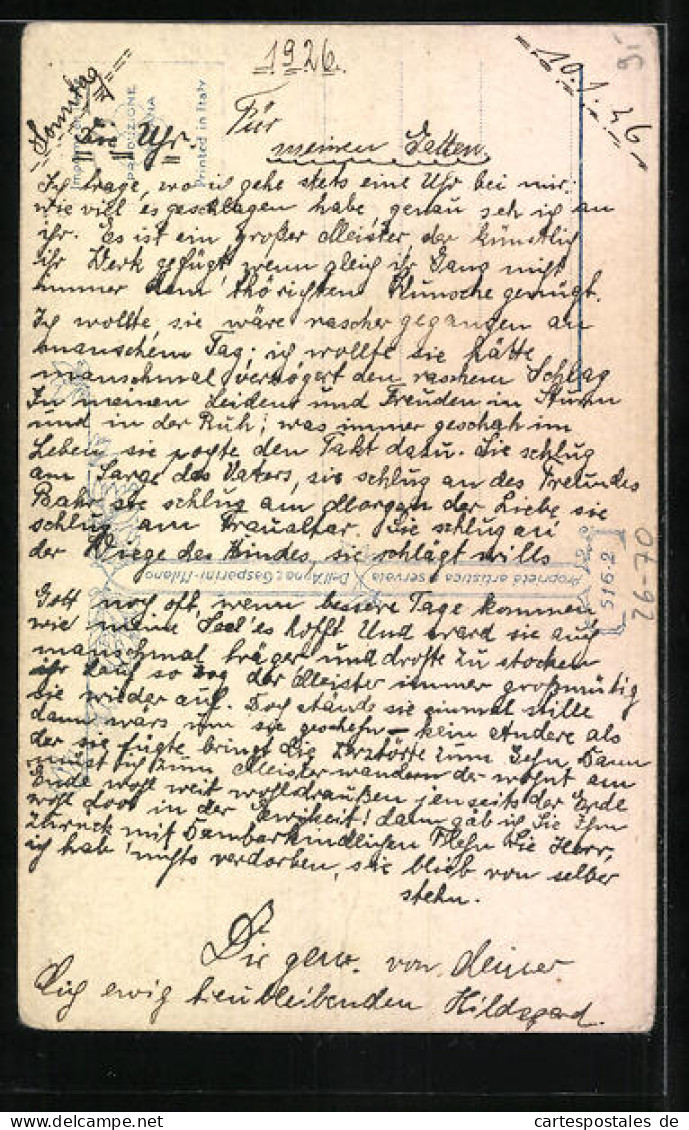 1926.
Sonntag
10.1.26
Die Uhr.
Für
meinen Gatten.
Ich trage, wo ich gehe stets eine Uhr bei mir,
wie viel es geschlagen habe, genau seh ich an
ihr. Es ist ein großer Meister, der künstlich
ihr Werk gefügt, wenn gleich ihr Gang nicht
immer dem thörichten Wunsche genügt.
Ich wollte, sie wäre rascher gegangen an
manschem Tag; ich wollte sie hätte
manschmal verzögert den raschen Schlag
In meinen Leiden und Freuden in Sturm
und in der Ruh; was immer geschah im
Leben sie pogte den Takt dazu. Sie schlug
am Sarge des Vaters, sie schlug an des Freundes
Bahr, sie schlug am Morgen der Liebe, sie
schlug am Traualtar. Sie schlug an
der Wiege des Kindes, sie schlägt wills
Gott noch oft, wenn bessere Tage kommen
wie meine Seel' es hofft Und ward sie auch
manschmal träger und drohte zu stocken
ihr Lauf so zog der Meister immer großmütig
sie wieder auf. Doch stände sie einmal stille
dann wärs um sie geschehn - kein Andere als
der sie fügte bringt die Zerstörte zum Gehn. Dann
müsst ich zum Meister wandern der wohnt am
Ende wohl weit wohl draußen jenseits der Erde
wohl dort in der Ewikeit! dann gäb ich Sie Ihm
zurück mit Dankbar kindlichen Flehn Sie Herr,
ich hab' nichts verdorben, sie blieb von selber
stehn.
Dir gew. von deiner
Dich ewig treubleibenden Hildegard.
PRODUZIONE
Printed in Italy
Proprietà artistica riservata
Dell'Anna & Gasparini - Milano
516-2
26-70
cartespostales de